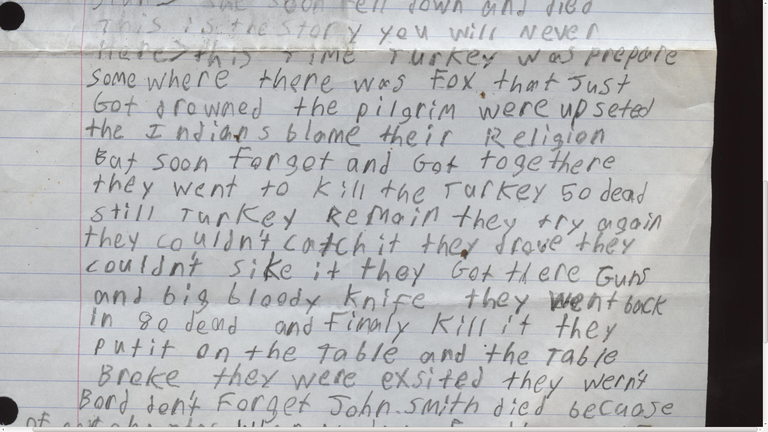 she soon fell down and died
This is the story you will Never
Here > this Time Turkey was prepare
some where there was Fox that Just
Got drowned the pilgrim were up seted
the Indians blame their Religion
But soon Forget and Got togethere
they went to kill the Turkey 50 dead
still Turkey Remain they try again
they couldn't catch it they drove they
couldn't sike it they Got there Guns
and big bloody knife they went back
In 80 dead and Finaly Kill it they
put it on the Table and the Table
Broke they were exsited they wern't
Bord don't Forget John.smith died becuase
of